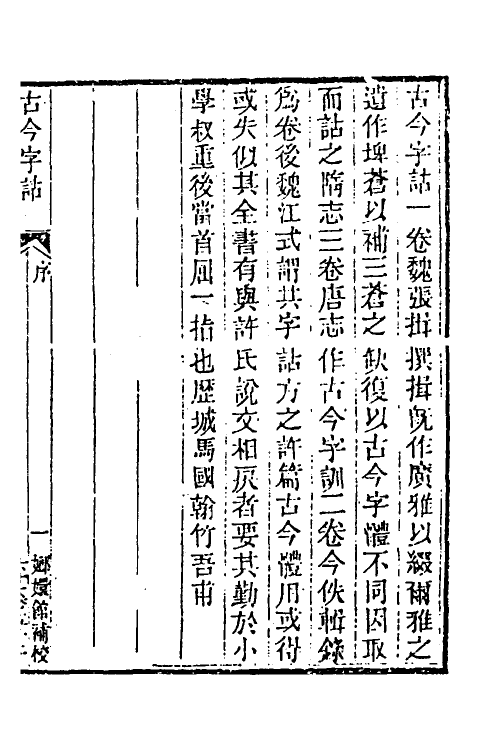 古今字詁一卷魏張揖撰揖旣作廣雅以綴爾雅之
遺作埤蒼以補三蒼之缺復以古今字體不同因取
而詁之隋志三卷唐志作古今字訓二卷今佚輯錄
爲卷後魏江式謂其字詁方之許篇古今體用或得
或失似其全書有與許氏說文相戾者要其勤於小
學叔重後當首屈一指也歷城馬國翰竹吾甫
古今字詁
序
一
嫏嬛館補校